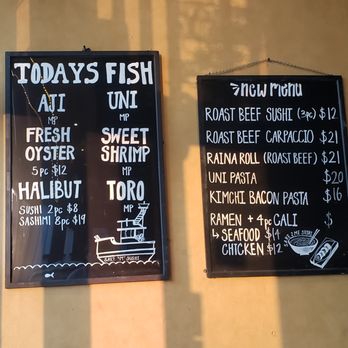 TODAYS FISH
AJI
MP
UNI
MP
FRESH
OYSTER
5 pc $12
SWEET
SHRIMP
MP
HALIBUT
SUSHI 2pc $8
SASHIMI 8pc $19
TORO
MP
new menu
ROAST BEEF SUSHI (3pc) $12
ROAST BEEF CARPACCIO $21
RAINA ROLL (ROAST BEEF) $21
UNI PASTA $20
KIMCHI BACON PASTA $16
RAMEN + 4pc CALI $
SEAFOOD $14
CHICKEN $12